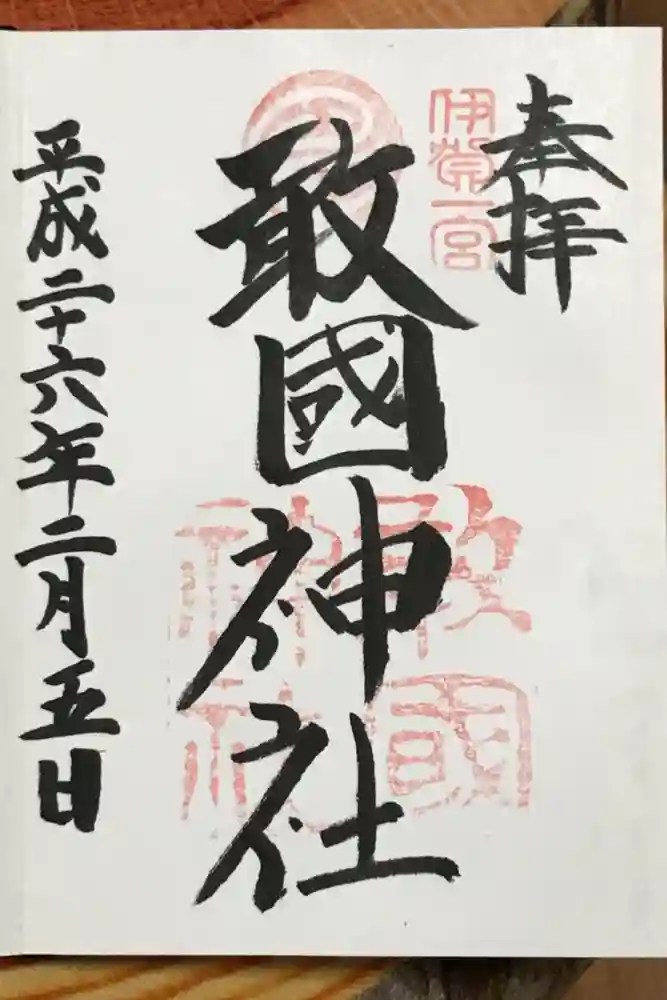 奉拝
伊賀一宮
敢國神社
敢國神社
平成二十六年二月五日